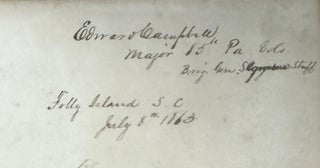 Edward Campbell,
Major 85th Pa. Vols.
Brig. Gen. Staff
Folly Island S. C
July 8th 1863